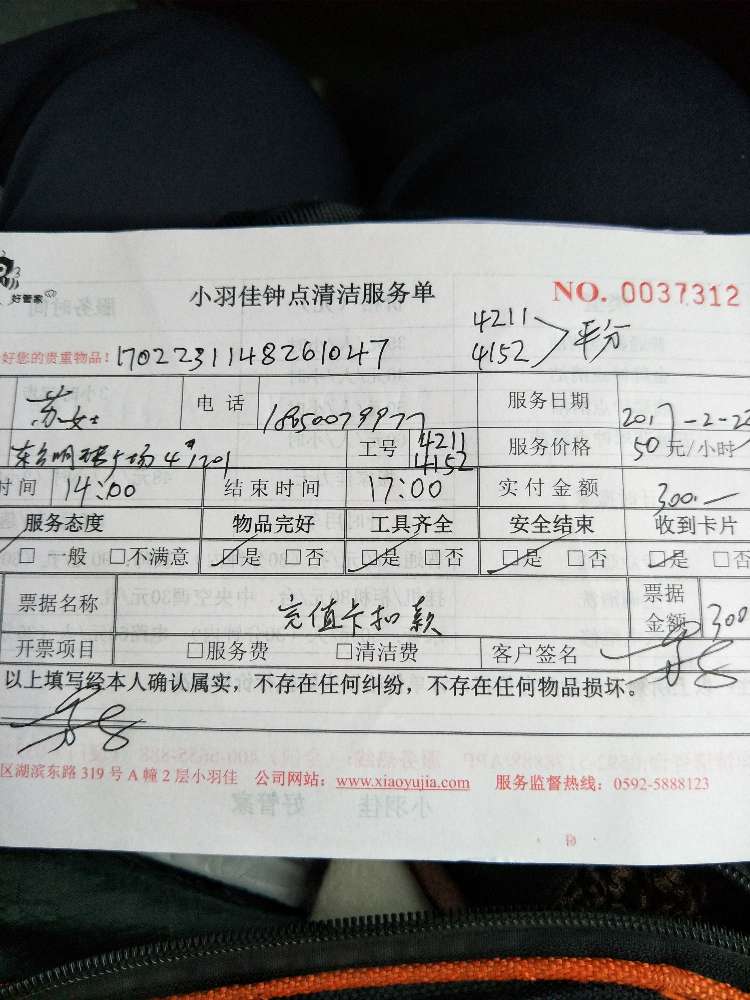 好管家
小羽佳钟点清洁服务单
NO. 0037312
4211
4152 平分
好您的贵重物品! 1702231148261047
苏女士 电话 18650079977 服务日期 2017-2-2
4#1201 工号 4211 4152 服务价格 50元/小时
时间 14:00 结束时间 17:00 实付金额 300.—
服务态度 物品完好 工具齐全 安全结束 收到卡片
□一般 □不满意 □是 □否 □是 □否 □是 □否 □是 □否
票据名称 充值卡扣款 票据金额 300
开票项目 □服务费 □清洁费 客户签名
以上填写经本人确认属实,不存在任何纠纷,不存在任何物品损坏。
区湖滨东路 319 号 A 幢 2 层小羽佳 公司网站:www.xiaoyujia.com 服务监督热线:0592-5888123